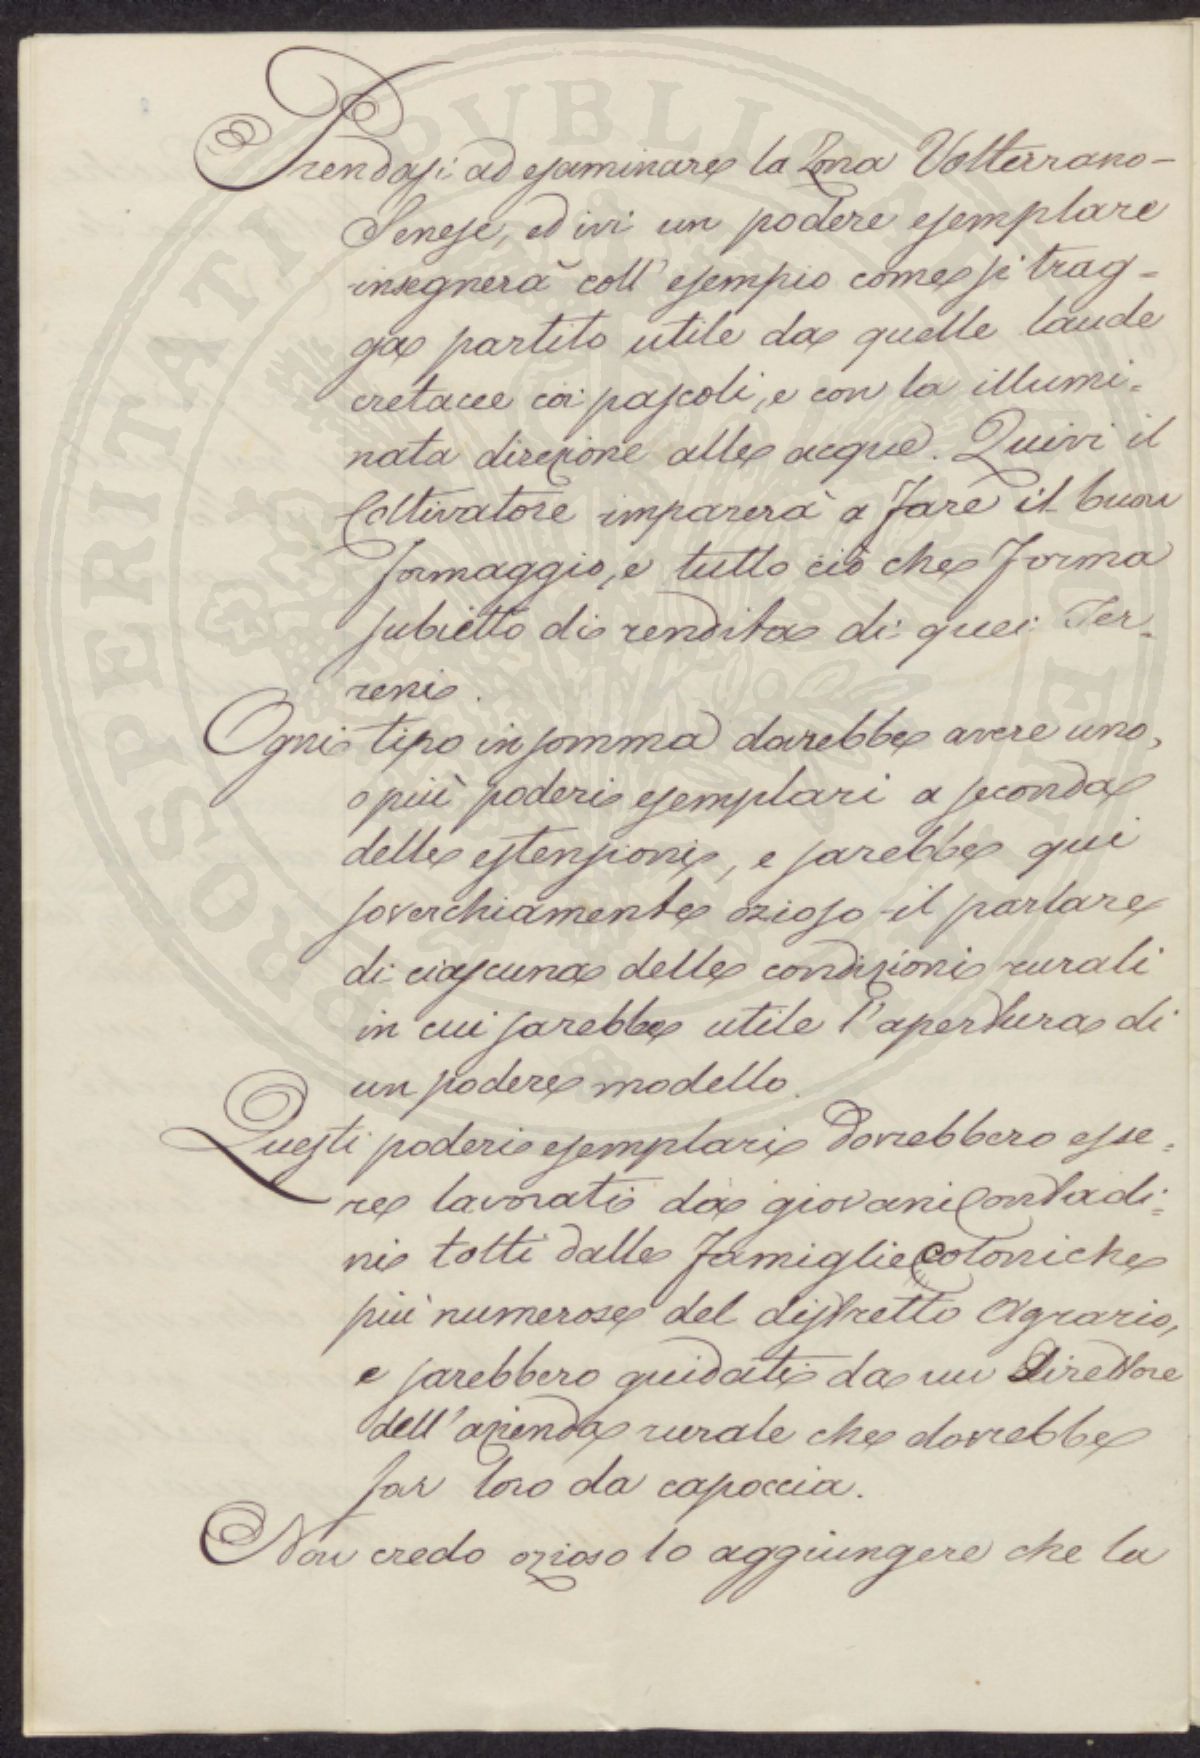 Prendasi ad esaminare la Zona Volterrano-
Senese, ed ivi un podere esemplare
insegnerà coll'esempio come si trag=
ga partito utile da quelle laude
cretacee coi pascoli, e con la illumi=
nata direzione alle acque. Quivi il
Coltivatore imparerà a fare il buon
formaggio, e tutto ciò che forma
subietto di rendita di quei Ter=
reni.
Ogni tipo in somma darebbe avere uno,
o più poderi esemplari a seconda
delle estensioni, e sarebbe qui
soverchiamente ozioso il parlare
di ciascuna delle condizioni rurali
in cui sarebbe utile l'apertura di
un podere modello.
Questi poderi esemplari dovrebbero esse=
re lavorati da giovani Contadi=
ni tolti dalle famiglie Coloniche
più numerose del distretto Agrario,
e sarebbero guidati da un Direttore
dell'azienda rurale che dovrebbe
far loro da capoccia.
Non credo ozioso lo aggiungere che la
PROSPERITATI PVBLICAE